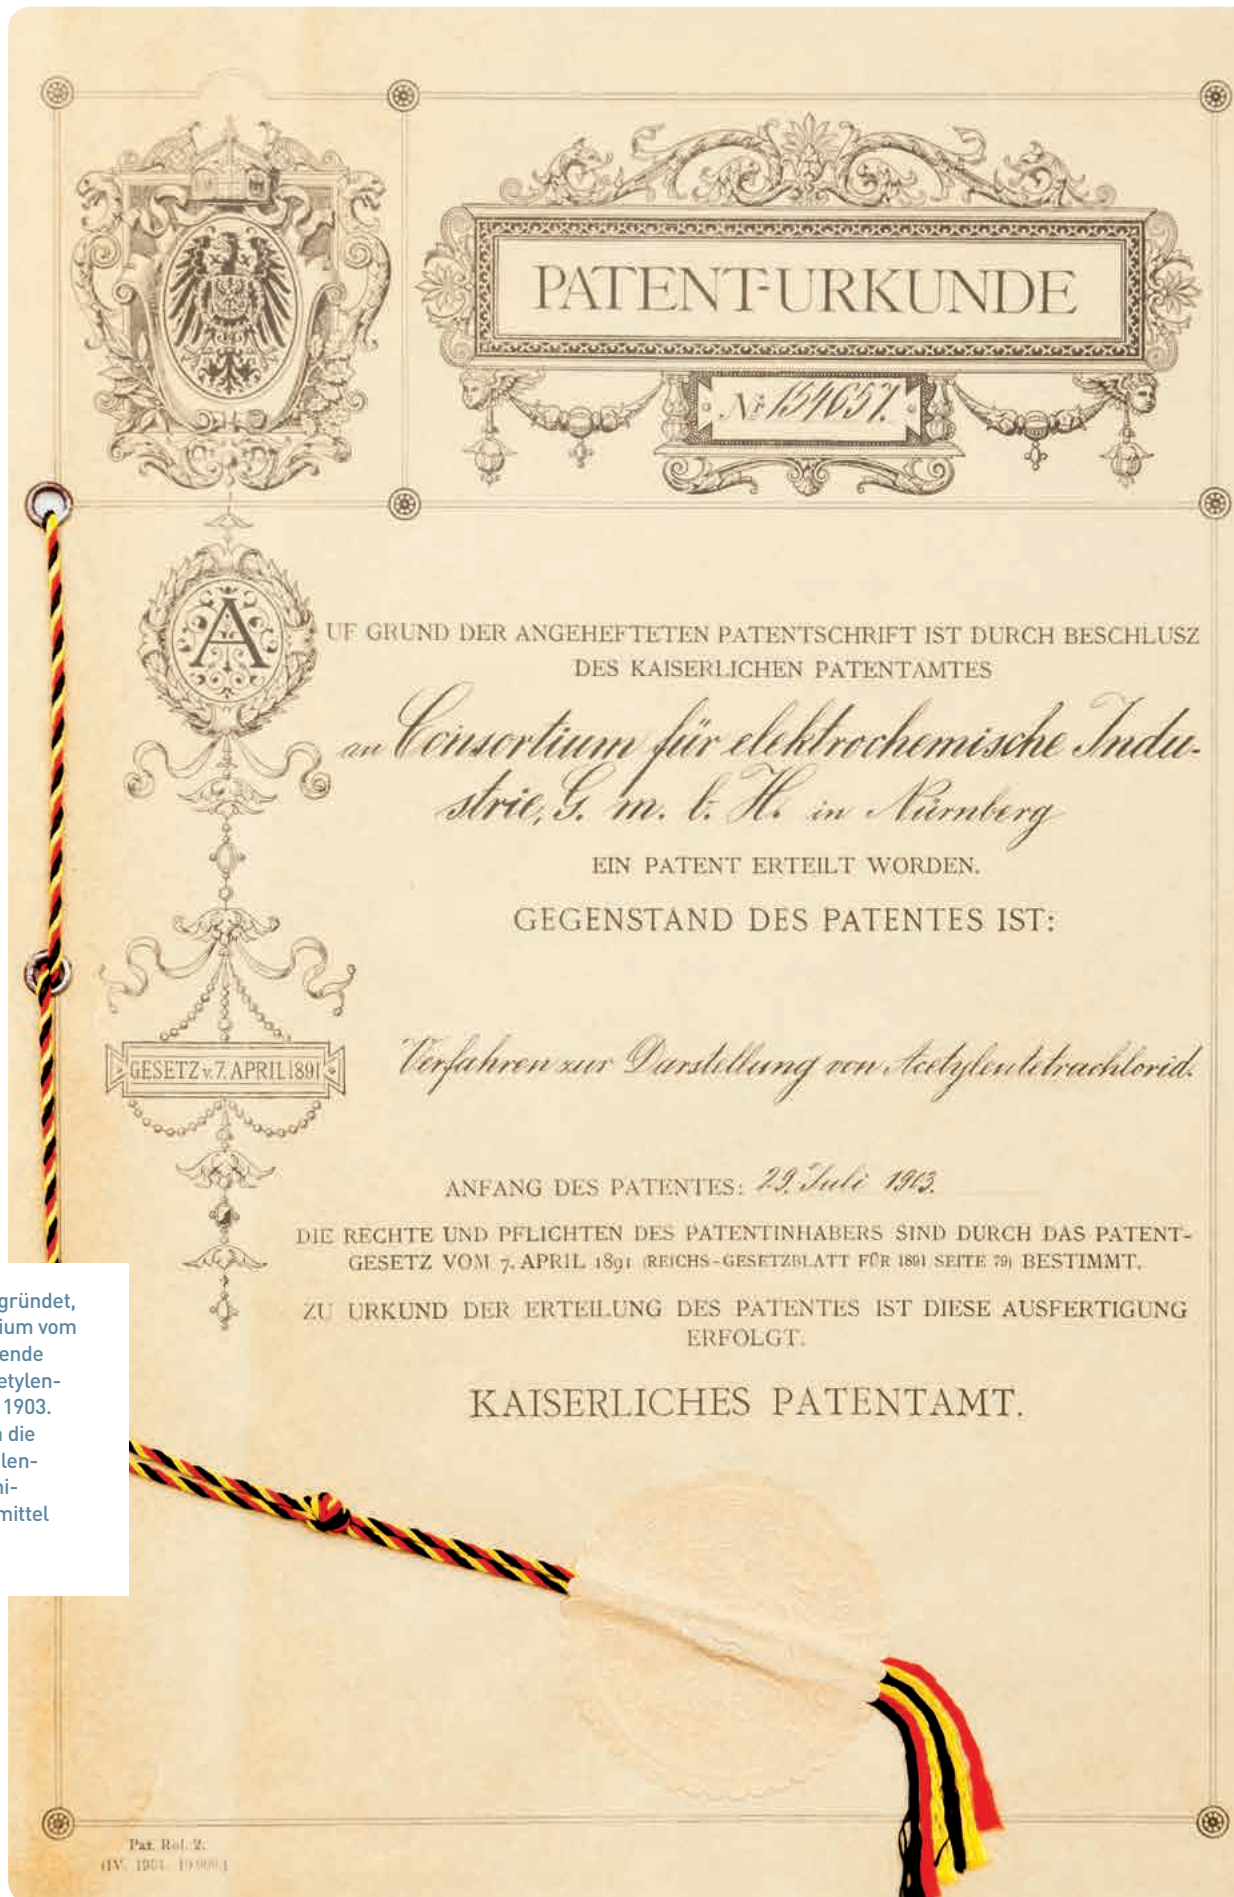 PATENT-URKUNDE
No 154657.
AUF GRUND DER ANGEHEFTETEN PATENTSCHRIFT IST DURCH BESCHLUSZ
DES KAISERLICHEN PATENTAMTES
an Consortium für elektrochemische Indu-
strie, G. m. b. H. in Nürnberg
EIN PATENT ERTEILT WORDEN.
GEGENSTAND DES PATENTES IST:
GESETZ v. 7. APRIL 1891
Verfahren zur Darstellung von Acetylentetrachlorid.
ANFANG DES PATENTES: 29. Juli 1903.
DIE RECHTE UND PFLICHTEN DES PATENTINHABERS SIND DURCH DAS PATENT-
GESETZ VOM 7. APRIL 1891 (REICHS-GESETZBLATT FÜR 1891 SEITE 79) BESTIMMT.
ZU URKUND DER ERTEILUNG DES PATENTES IST DIESE AUSFERTIGUNG
ERFOLGT.
KAISERLICHES PATENTAMT.
gründet,
ium vom
ende
etylen-
1903.
die
len-
ni-
mittel
Pat. Rol. 2.